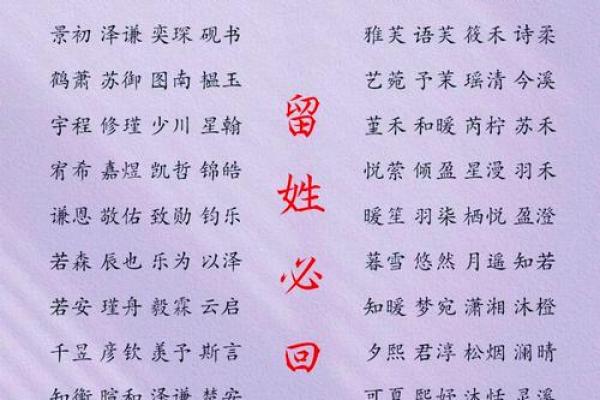 景初 泽谦 奕琛 砚书
鹤萧 苏御 图南 韫玉
宇程 修瑾 少川 星翰
宥希 嘉煜 凯哲 锦皓
谦恩 敬佑 致勋 钧乐
若森 辰也 乐为 以泽
若安 瑾舟 毅霖 云启
千昱 彦钦 羡予 斯言
知衡 暄和 泽谦 楚安
留姓必回
雅芙 语芙 筱禾 诗柔
艺菀 予茉 瑶清 今溪
堇禾 和暖 芮柠 苏禾
悦萦 倾盈 星漫 羽禾
暖笙 羽柒 栖悦 盈澄
暮雪 悠然 月遥 知若
知暖 梦宛 潇湘 沐橙
夕熙 君淳 松烟 澜晴
可夏 熙妤 沐恬